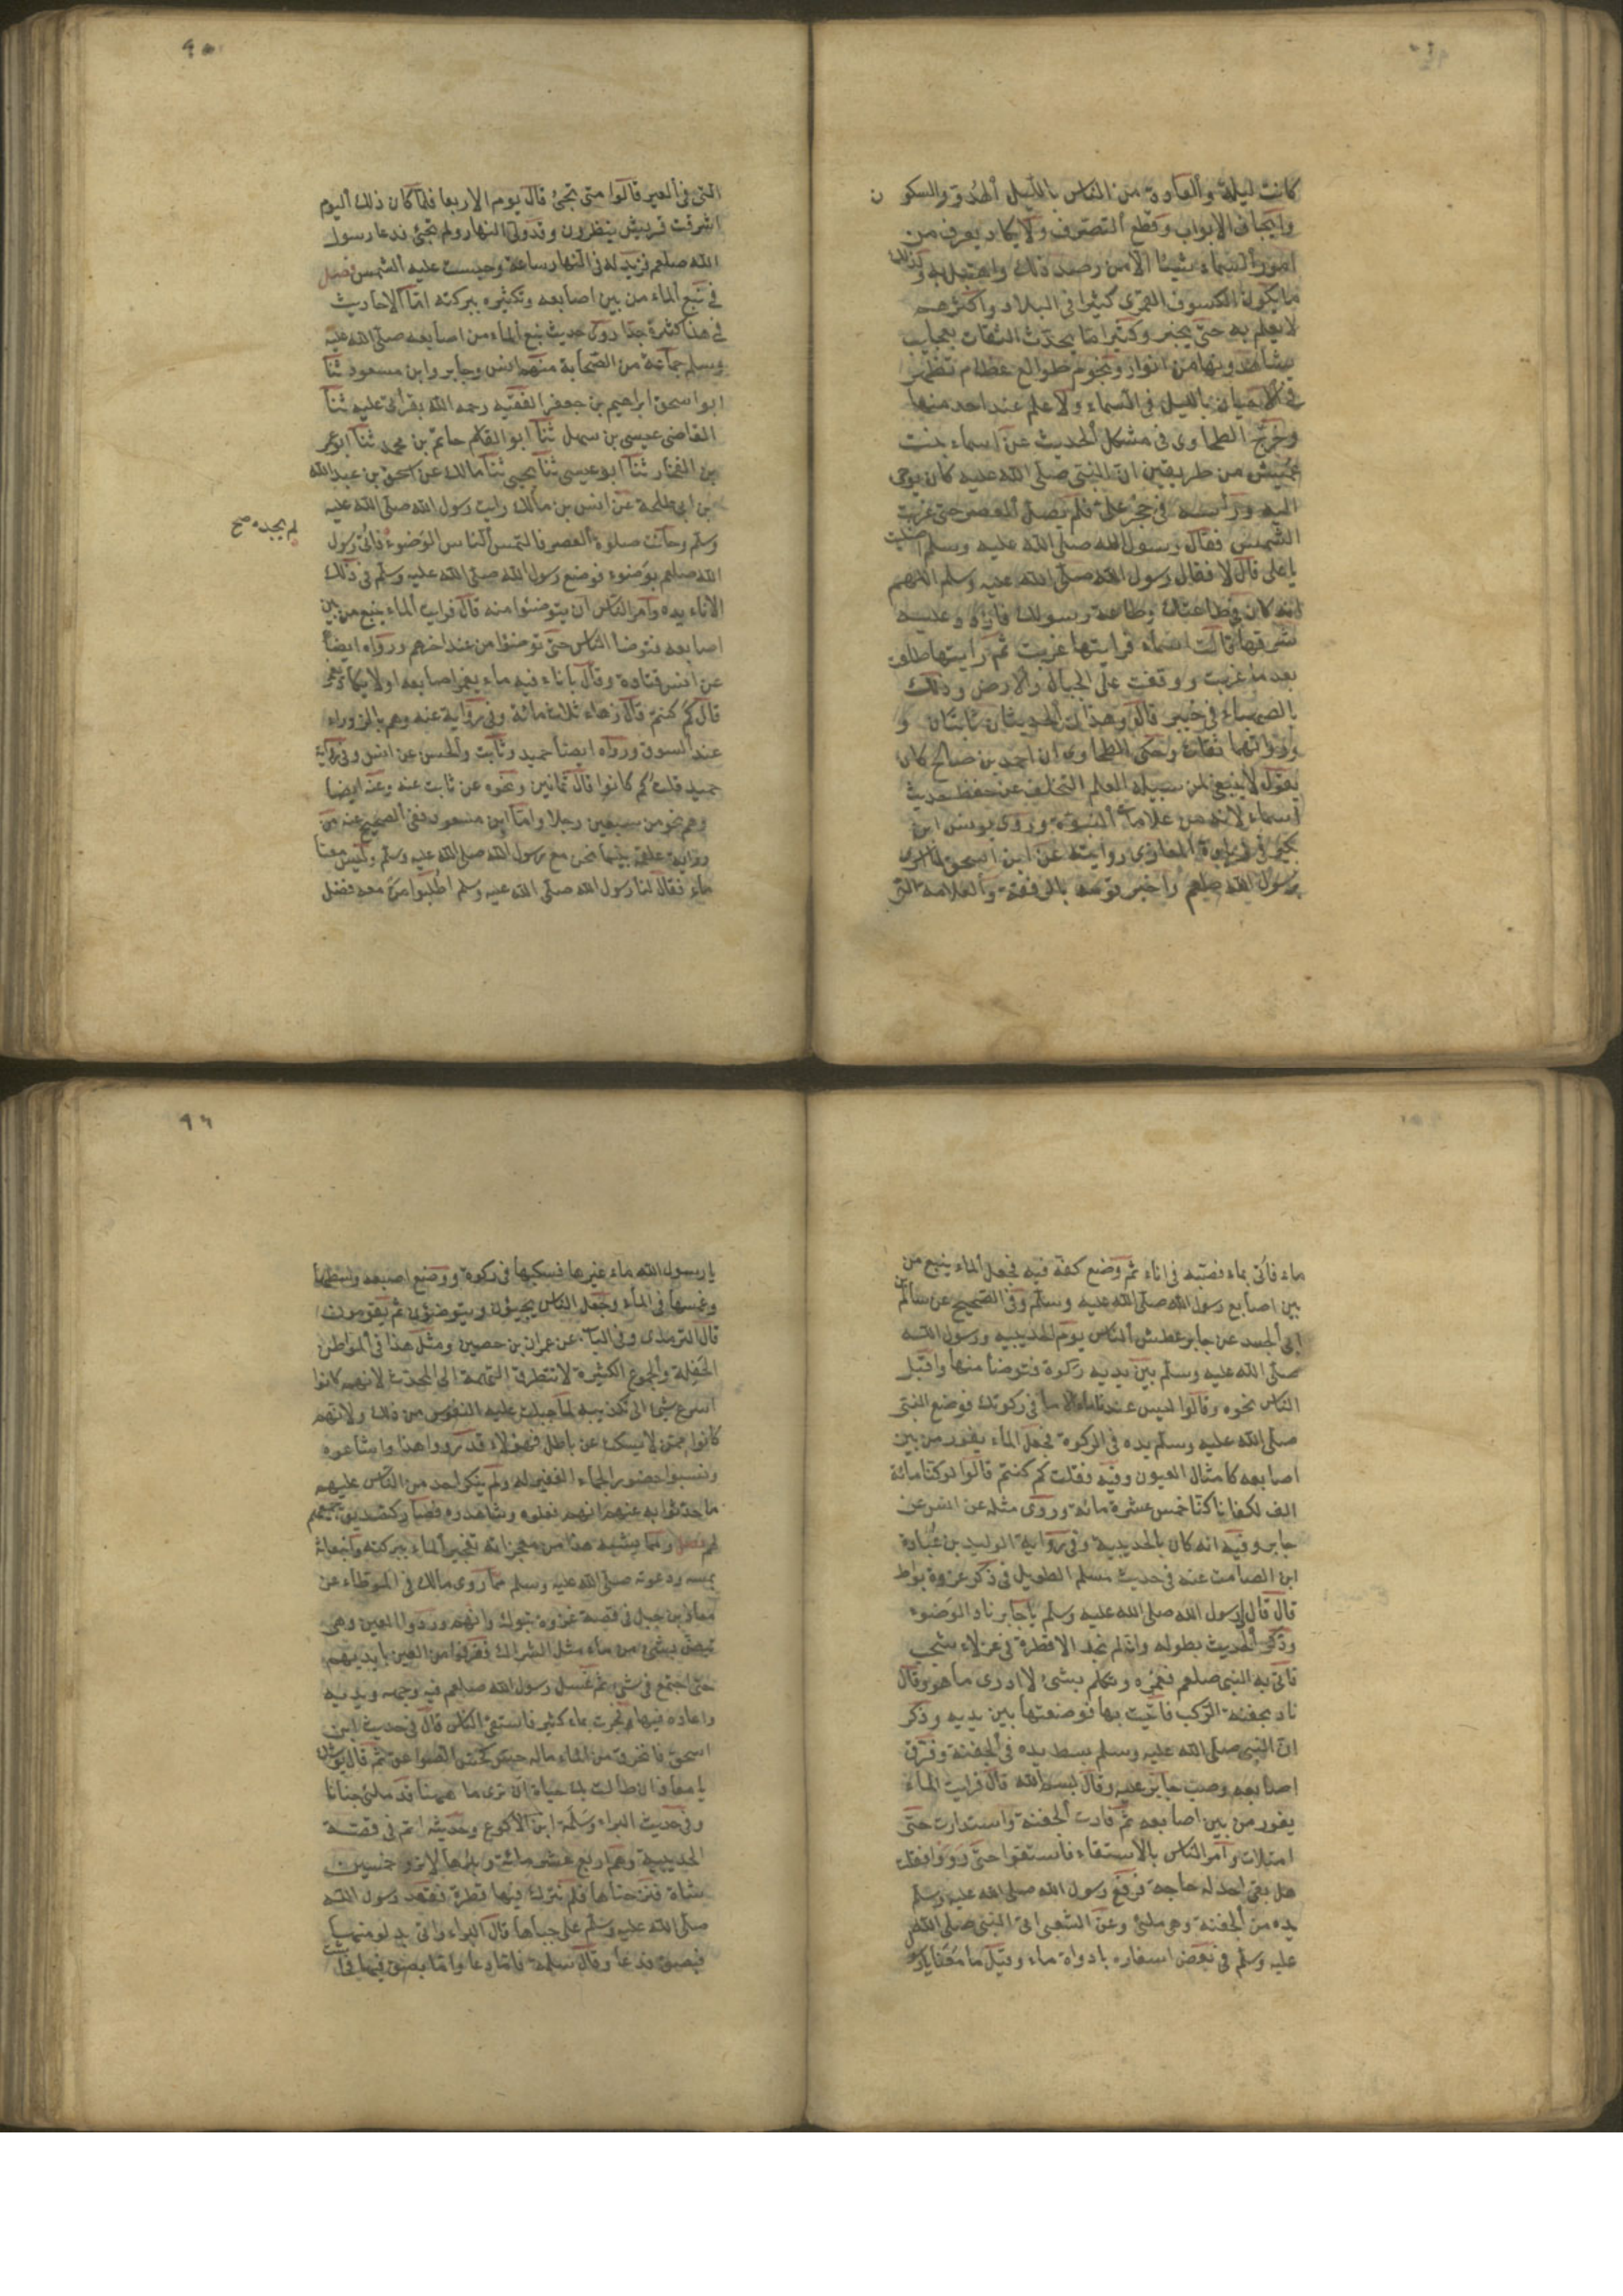 كانت ليلة والعادة من الناس بالليل الهدو والسكون
وايجاف الابواب وقطع التصرف ولا يكاد يعرف من
امور السماء شيئا الا من رصد ذلك واهتبل به وكذلك
ما يكون الكسوف القمرى كثيرا فى البلاد واكثرهم
لا يعلم به حتى يخبر وكثيرا ما يحدث الثقات بعجايب
يشاهدونها من انوار ونجوم طوالع عظام تظهر
فى الاحيان بالليل فى السماء ولا علم عند احد منها
وخرج الطحاوى فى مشكل الحديث عن اسماء بنت
عميس من طريقين ان النبى صلى الله عليه كان يوحى
اليه وراسه فى حجر على فلم يصل العصر حتى غربت
الشمس فقال رسول الله صلى الله عليه وسلم اصليت
يا على قال لا فقال رسول الله صلى الله عليه وسلم اللهم
انه كان فى طاعتك وطاعة رسولك فاردد عليه
شرقها قالت اسماء فرايتها غربت ثم رايتها طلعت
بعد ما غربت ووقفت على الجبال والارض وذلك
بالصهباء فى خيبر قال وهذان الحديثان ثابتان و
رواتهما ثقات وحكى الطحاوى ان احمد بن صالح كان
يقول لا ينبغى لمن سبيله العلم التخلف عن حفظ حديث
اسماء لانه من علامات النبوة وروى يونس ابن
بكير فى زيادة المغازى روايته عن ابن اسحق لما اسرى
برسول الله صلعم واخبر قومه بالرفقة والعلامة التى
٩٥
التى فى العير قالوا متى تجئ قال يوم الاربعا فلما كان ذلك اليوم
اشرفت قريش ينظرون وقد ولى النهار ولم تجئ فدعا رسول
الله صلعم فزيد له فى النهار ساعة وحبست عليه الشمس فصل
فى نبع الماء من بين اصابعه وتكثيره ببركته اما الاحاديث
فى هذا كثيرة جدا روى حديث نبع الماء من اصابعه صلى الله عليه
وسلم جماعة من الصحابة منهم انس وجابر وابن مسعود ثنا
ابو اسحق ابراهيم بن جعفر الفقيه رحمه الله بقراتى عليه ثنا
القاضى عيسى بن سهل ثنا ابو القاسم حاتم بن محمد ثنا ابو عمر
بن الفخار ثنا ابو عيسى ثنا يحيى ثنا مالك عن اسحق بن عبد الله
بن ابى طلحة عن انس بن مالك رايت رسول الله صلى الله عليه
وسلم وحانت صلوة العصر فالتمس الناس الوضوء فاتى رسول
لم يجده صح
الله صلعم بوضوء فوضع رسول الله صلى الله عليه وسلم فى ذلك
الاناء يده وامر الناس ان يتوضئوا منه قال فرايت الماء ينبع من بين
اصابعه فتوضا الناس حتى توضئوا من عند اخرهم ورواه ايضا
عن انس قتادة وقال باناء فيه ماء يغمر اصابعه اولا يكاد يغمر
قال كم كنتم قال زهاء ثلاث مائة وفى رواية عنه وهم بالزوراء
عند السوق ورواه ايضا حميد وثابت والحسن عن انس وفى رواية
حميد قلت كم كانوا قال ثمانين ونحوه عن ثابت عنه وعنه ايضا
وهم نحو من سبعين رجلا واما ابن مسعود ففى الصحيح عنه من
رواية علقمة بينما نحن مع رسول الله صلى الله عليه وسلم وليس معنا
ماء فقال لنا رسول الله صلى الله عليه وسلم اطلبوا من معه فضل
ماء فاتى بماء فصبه فى اناء ثم وضع كفه فيه فجعل الماء ينبع من
بين اصابع رسول الله صلى الله عليه وسلم وفى الصحيح عن سالم بن
ابى الجعد عن جابر عطش الناس يوم الحديبيه ورسول الله
صلى الله عليه وسلم بين يديه ركوة فتوضأ منها واقبل
الناس نحوه وقالوا ليس عندنا ماء الا ما فى ركوتك فوضع النبى
صلى الله عليه وسلم يده فى الركوة فجعل الماء يفور من بين
اصابعه كامثال العيون وفيه فقلت كم كنتم قالوا لو كنا مائة
الف لكفانا كنا خمس عشرة مائة وروى مثله عن انس عن
جابر وفيه انه كان بالحديبية وفى رواية الوليد بن عبادة
ابن الصامت عنه فى حديث مسلم الطويل فى ذكر غزوة بواط
قال قال لى رسول الله صلى الله عليه وسلم يا جابر ناد الوضوء
وذكر الحديث بطوله وانه لم نجد الا قطرة فى عزلاء شجب
فاتى به النبى صلعم فغمزه وتكلم بشئ لا ادرى ما هو وقال
ناد بجفنة الركب فاتيت بها فوضعتها بين يديه وذكر
ان النبى صلى الله عليه وسلم بسط يده فى الجفنة وفرق
اصابعه وصب جابر عليه وقال بسم الله قال فرايت الماء
يفور من بين اصابعه ثم فارت الجفنة واستدارت حتى
امتلات وامر الناس بالاستقاء فاستقوا حتى رووا فقلت
هل بقى احد له حاجة فرفع رسول الله صلى الله عليه وسلم
يده من الجفنة وهى ملئى وعن الشعبى اتى النبى صلى الله
عليه وسلم فى بعض اسفاره باداوة ماء وقيل ما معنا
٩٦
يا رسول الله ماء غيرها فسكبها فى ركوة ووضع اصبعه وسطها
وغمسها فى الماء وجعل الناس يجيئون ويتوضؤن ثم يقومون
قال الترمذى وفى الباب عن عمران بن حصين ومثل هذا فى المواطن
الحفلة والجموع الكثيرة لا تتطرق التهمة الى المحدث لانهم كانوا
اسرع شئ الى تكذيبه لما جبلت عليه النفوس من ذلك ولانهم
كانوا ممن لا يسكت عن باطل فهؤلاء قد رووا هذا واشاعوه
ونسبوا حضور الجماء الغفير له ولم ينكر احد من الناس عليهم
ما حدثوا به عنهم انهم فعلوه وشاهدوه فصار كتصديق جميعهم
لهم فصل ومما يشبه هذا من معجزاته تفجير الماء ببركته وانبعاثه
بمسه ودعوته صلى الله عليه وسلم مما روى مالك فى الموطاء عن
معاذ بن جبل فى قصة غزوة تبوك وانهم وردوا العين وهى
تبض بشئ من ماء مثل الشراك فغرفوا من العين بايديهم
حتى اجتمع فى شئ ثم غسل رسول الله صلعم فيه وجهه ويديه
واعاده فيها فجرت بماء كثير فاستقى الناس قال فى حديث ابن
اسحق فانخرق من الماء ماله حس كحس الصواعق ثم قال يوشك
يا معاذ ان طالت بك حياة ان ترى ما ههنا قد ملئ جنانا
وفى حديث البراء وسلمة ابن الاكوع وحديثه اتم فى قصة
الحديبية وهم اربع عشر مائة وبئرها لا تروى خمسين
شاة فنزحناها فلم نترك فيها قطرة فقعد رسول الله
صلى الله عليه وسلم على جباها قال البراء واتى بدلو منها
فبصق فدعا وقال سلمة فاما دعا واما بصق فيها فجاشت